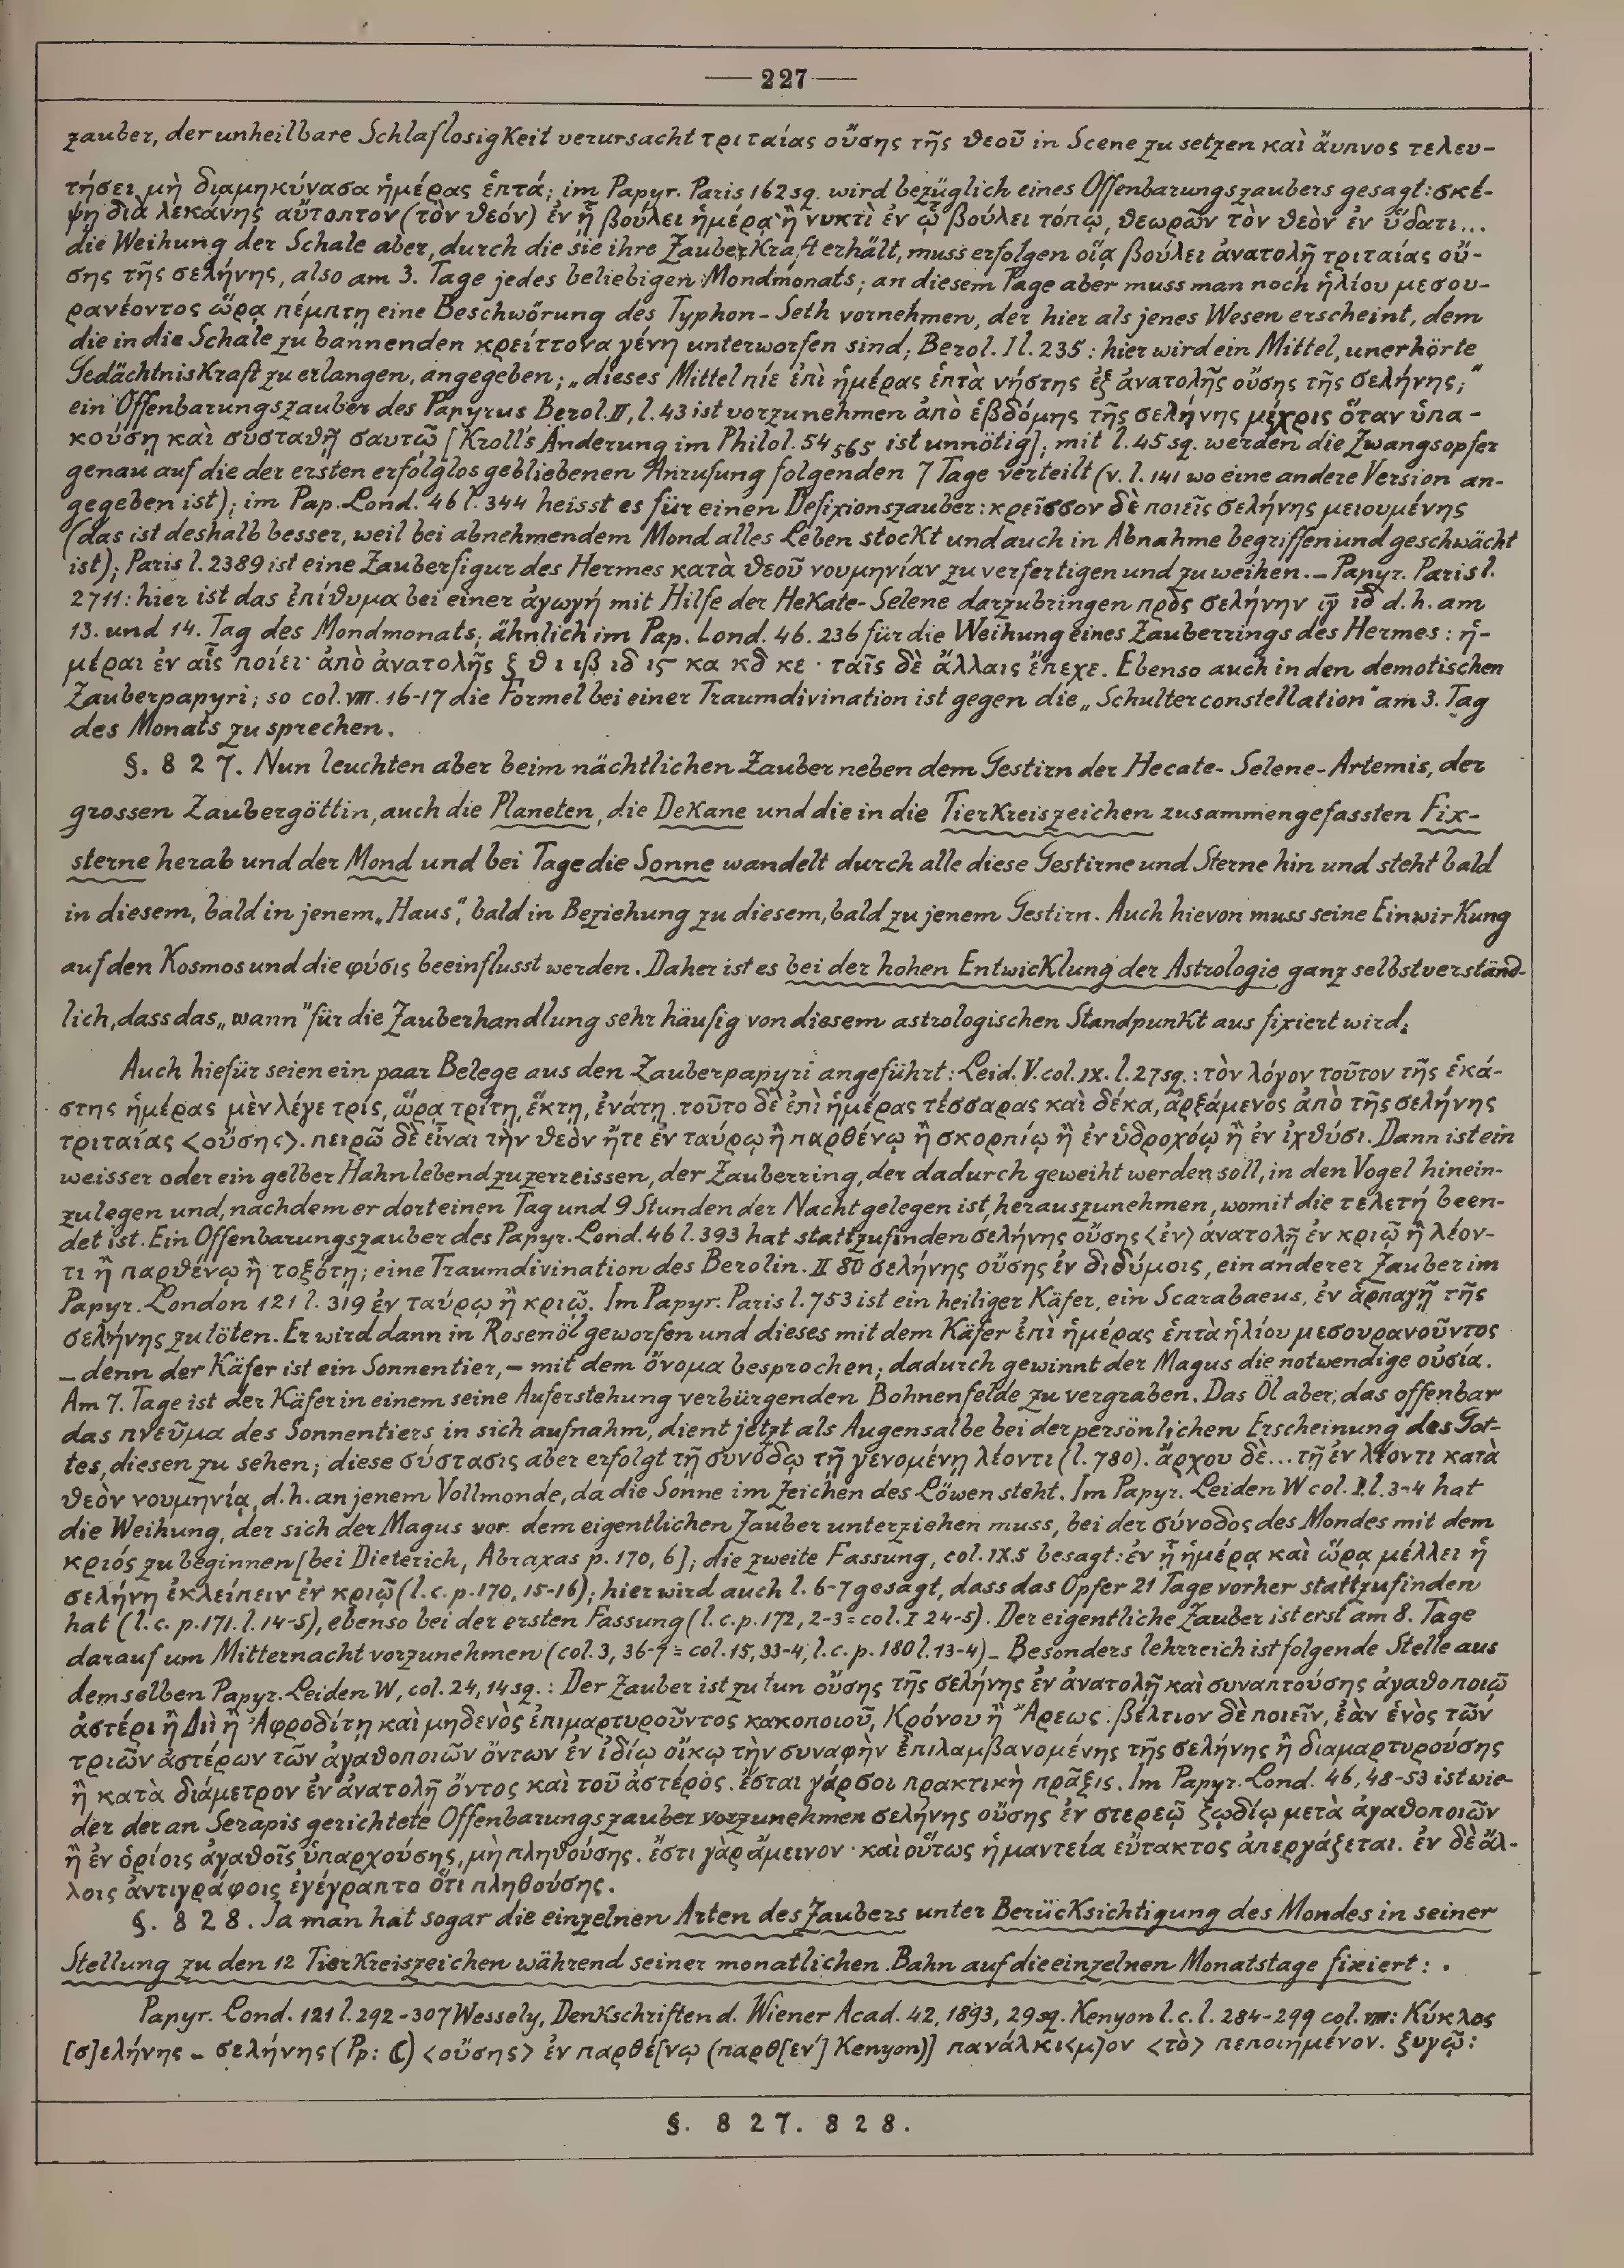 — 227 —
zauber, der unheilbare Schlaflosigkeit verursacht τριταίας οὔσης τῆς θεοῦ in Scene zu setzen καὶ ἄυπνος τελευ-
τήσει μὴ διαμηκύνασα ἡμέρας ἑπτά; im Papyr. Paris 162 sq. wird bezüglich eines Offenbarungszaubers gesagt: σκέ-
ψῃ διὰ λεκάνης αὔτοπτον (τὸν θεόν) ἐν ᾗ βούλει ἡμέρᾳ ἢ νυκτὶ ἐν ᾧ βούλει τόπῳ, θεωρῶν τὸν θεὸν ἐν ὕδατι...
die Weihung der Schale aber, durch die sie ihre Zauberkraft erhält, muss erfolgen οἵᾳ βούλει ἀνατολῇ τριταίας οὔ-
σης τῆς σελήνης, also am 3. Tage jedes beliebigen Mondmonats; an diesem Tage aber muss man noch ἡλίου μεσου-
ρανέοντος ὥρᾳ πέμπτῃ eine Beschwörung des Typhon-Seth vornehmen, der hier als jenes Wesen erscheint, dem
die in die Schale zu bannenden κρείττονα γένη unterworfen sind; Berol. I l. 235: hier wird ein Mittel, unerhörte
Gedächtniskraft zu erlangen, angegeben; „dieses Mittel πίε ἐπὶ ἡμέρας ἑπτὰ νήστης ἐξ ἀνατολῆς οὔσης τῆς σελήνης;“
ein Offenbarungszauber des Papyrus Berol. II, l. 43 ist vorzunehmen ἀπὸ ἑβδόμης τῆς σελήνης μέχρις ὅταν ὑπα-
κούσῃ καὶ συσταθῇ σαυτῷ [Kroll's Änderung im Philol. 54 565 ist unnötig]; mit l. 45 sq. werden die Zwangsopfer
genau auf die der ersten erfolglos gebliebenen Anrufung folgenden 7 Tage verteilt (v. l. 141 wo eine andere Version an-
gegeben ist); im Pap. Lond. 46 l. 344 heisst es für einen Defixionszauber: κρεῖσσον δὲ ποιεῖς σελήνης μειουμένης
(das ist deshalb besser, weil bei abnehmendem Mond alles Leben stockt und auch in Abnahme begriffen und geschwächt
ist); Paris l. 2389 ist eine Zauberfigur des Hermes κατὰ θεοῦ νουμηνίαν zu verfertigen und zu weihen. – Papyr. Paris l.
2711: hier ist das ἐπίθυμα bei einer ἀγωγή mit Hilfe der Hekate-Selene darzubringen πρὸς σελήνην ιγ̄ ιδ̄ d. h. am
13. und 14. Tag des Mondmonats; ähnlich im Pap. Lond. 46. 236 für die Weihung eines Zauberrings des Hermes: ἡ-
μέραι ἐν αἷς ποίει· ἀπὸ ἀνατολῆς ξ θ ι ιβ ιδ ις κα κδ κε · ταῖς δὲ ἄλλαις ἔπεχε. Ebenso auch in den demotischen
Zauberpapyri; so col. VIII. 16-17 die Formel bei einer Traumdivination ist gegen die „Schulterconstellation“ am 3. Tag
des Monats zu sprechen.
§. 827. Nun leuchten aber beim nächtlichen Zauber neben dem Gestirn der Hecate-Selene-Artemis, der
grossen Zaubergöttin, auch die Planeten, die Dekane und die in die Tierkreiszeichen zusammengefassten Fix-
sterne herab und der Mond und bei Tage die Sonne wandelt durch alle diese Gestirne und Sterne hin und steht bald
in diesem, bald in jenem „Haus“, bald in Beziehung zu diesem, bald zu jenem Gestirn. Auch hievon muss seine Einwirkung
auf den Kosmos und die φύσις beeinflusst werden. Daher ist es bei der hohen Entwicklung der Astrologie ganz selbstverständ-
lich, dass das „wann“ für die Zauberhandlung sehr häufig von diesem astrologischen Standpunkt aus fixiert wird:
Auch hiefür seien ein paar Belege aus den Zauberpapyri angeführt: Leid. V. col. IX. l. 27 sq.: τὸν λόγον τοῦτον τῆς ἑκά-
στης ἡμέρας μὲν λέγε τρίς, ὥρᾳ τρίτῃ, ἕκτῃ, ἐνάτῃ. τοῦτο δὲ ἐπὶ ἡμέρας τέσσαρας καὶ δέκα, ἀρξάμενος ἀπὸ τῆς σελήνης
τριταίας <οὔσης>. πειρῶ δὲ εἶναι τὴν θεὸν ἤτε ἐν ταύρῳ ἢ παρθένῳ ἢ σκορπίῳ ἢ ἐν ὑδροχόῳ ἢ ἐν ἰχθύσι. Dann ist ein
weisser oder ein gelber Hahn lebend zu zerreissen, der Zauberring, der dadurch geweiht werden soll, in den Vogel hinein-
zulegen und, nachdem er dort einen Tag und 9 Stunden der Nacht gelegen ist, herauszunehmen, womit die τελετή been-
det ist. Ein Offenbarungszauber des Papyr. Lond. 46 l. 393 hat stattzufinden σελήνης οὔσης <ἐν> ἀνατολῇ ἐν κριῷ ἢ λέον-
τι ἢ παρθένῳ ἢ τοξότῃ; eine Traumdivination des Berolin. II 80 σελήνης οὔσης ἐν διδύμοις, ein anderer Zauber im
Papyr. London 121 l. 319 ἐν ταύρῳ ἢ κριῷ. Im Papyr. Paris l. 753 ist ein heiliger Käfer, ein Scarabaeus, ἐν ἁρπαγῇ τῆς
σελήνης zu töten. Er wird dann in Rosenöl geworfen und dieses mit dem Käfer ἐπὶ ἡμέρας ἑπτὰ ἡλίου μεσουρανοῦντος
– denn der Käfer ist ein Sonnentier, – mit dem ὄνομα besprochen; dadurch gewinnt der Magus die notwendige οὐσία.
Am 7. Tage ist der Käfer in einem seine Auferstehung verbürgenden Bohnenfelde zu vergraben. Das Öl aber, das offenbar
das πνεῦμα des Sonnentiers in sich aufnahm, dient jetzt als Augensalbe bei der persönlichen Erscheinung des Got-
tes, diesen zu sehen; diese σύστασις aber erfolgt τῇ συνόδῳ τῇ γενομένῃ λέοντι (l. 780). ἄρχου δὲ... τῇ ἐν λέοντι κατὰ
θεὸν νουμηνίᾳ, d. h. an jenem Vollmonde, da die Sonne im Zeichen des Löwen steht. Im Papyr. Leiden W col. I. l. 3-4 hat
die Weihung, der sich der Magus vor dem eigentlichen Zauber unterziehen muss, bei der σύνοδος des Mondes mit dem
κριός zu beginnen [bei Dieterich, Abraxas p. 170, 6]; die zweite Fassung, col. IX.5 besagt: ἐν ᾗ ἡμέρᾳ καὶ ὥρᾳ μέλλει ἡ
σελήνη ἐκλείπειν ἐν κριῷ (l. c. p. 170, 15-16); hier wird auch l. 6-7 gesagt, dass das Opfer 21 Tage vorher stattzufinden
hat (l. c. p. 171. l. 14-5), ebenso bei der ersten Fassung (l. c. p. 172, 2-3 = col. I 24-5). Der eigentliche Zauber ist erst am 8. Tage
darauf um Mitternacht vorzunehmen (col. 3, 36-7 = col. 15, 33-4, l. c. p. 180 l. 13-4) – Besonders lehrreich ist folgende Stelle aus
demselben Papyr. Leiden W, col. 24, 14 sq.: Der Zauber ist zu tun οὔσης τῆς σελήνης ἐν ἀνατολῇ καὶ συναπτούσης ἀγαθοποιῷ
ἀστέρι ἢ Διὶ ἢ Ἀφροδίτῃ καὶ μηδενὸς ἐπιμαρτυροῦντος κακοποιοῦ, Κρόνου ἢ Ἄρεως. βέλτιον δὲ ποιεῖν, ἐὰν ἑνὸς τῶν
τριῶν ἀστέρων τῶν ἀγαθοποιῶν ὄντων ἐν ἰδίῳ οἴκῳ τὴν συναφὴν ἐπιλαμβανομένης τῆς σελήνης ἢ διαμαρτυρούσης
ἢ κατὰ διάμετρον ἐν ἀνατολῇ ὄντος καὶ τοῦ ἀστέρος. ἔσται γάρ σοι πρακτικὴ πρᾶξις. Im Papyr. Lond. 46, 48-53 ist wie-
der der an Serapis gerichtete Offenbarungszauber vorzunehmen σελήνης οὔσης ἐν στερεῷ ζῳδίῳ μετὰ ἀγαθοποιῶν
ἢ ἐν ὁρίοις ἀγαθοῖς ὑπαρχούσης, μὴ πληθούσης. ἔστι γὰρ ἄμεινον · καὶ οὕτως ἡ μαντεία εὔτακτος ἀπεργάζεται. ἐν δὲ ἄλ-
λοις ἀντιγράφοις ἐγέγραπτο ὅτι πληθούσης.
§. 828. Ja man hat sogar die einzelnen Arten des Zaubers unter Berücksichtigung des Mondes in seiner
Stellung zu den 12 Tierkreiszeichen während seiner monatlichen Bahn auf die einzelnen Monatstage fixiert:
Papyr. Lond. 121 l. 292-307 Wessely, Denkschriften d. Wiener Acad. 42, 1893, 29 sq. Kenyon l. c. l. 284-299 col. VIII: Κύκλος
[σ]ελήνης – σελήνης (Pp: ☾) <οὔσης> ἐν παρθέ[νῳ (παρθ[εν'] Kenyon)] πανάλκι<μ>ον <τὸ> πεποιημένον. ζυγῷ:
§. 827. 828.